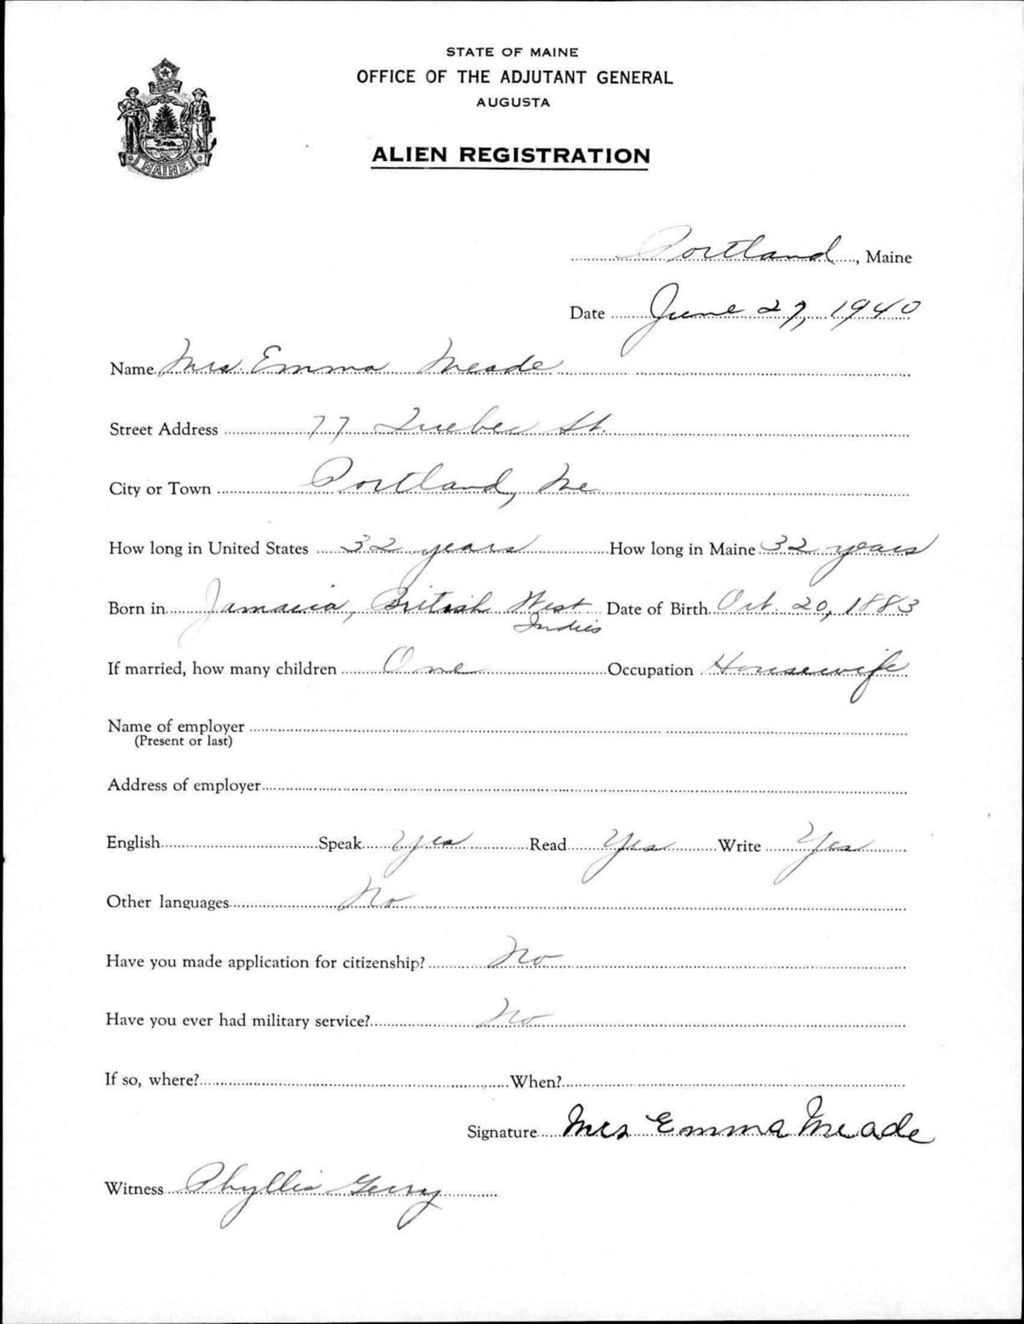 STATE OF MAINE
OFFICE OF THE ADJUTANT GENERAL
AUGUSTA
ALIEN REGISTRATION
MAINE
Portland, Maine
Date June 27, 1940
Name Mrs. Emma Meade
Street Address 77 Quebec St.
City or Town Portland, Me
How long in United States 32 years How long in Maine 32 years
Born in Jamaica, British West Indies Date of Birth Oct. 20, 1883
If married, how many children One Occupation Housewife
Name of employer
(Present or last)
Address of employer
English Speak Yes Read Yes Write Yes
Other languages No
Have you made application for citizenship? No
Have you ever had military service? No
If so, where? When?
Signature Mrs Emma Meade
Witness Phyllis Gerry